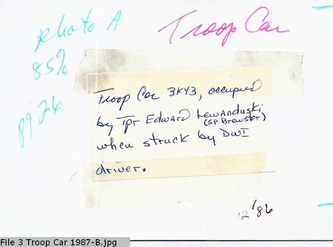 photo A
85%
89-26
Troop Car
Troop Car 3K43, occupied
by Tpr Edward Lewanduski
(SP Brewster)
when struck by DWI
driver.
12/86
File 3 Troop Car 1987-B.jpg